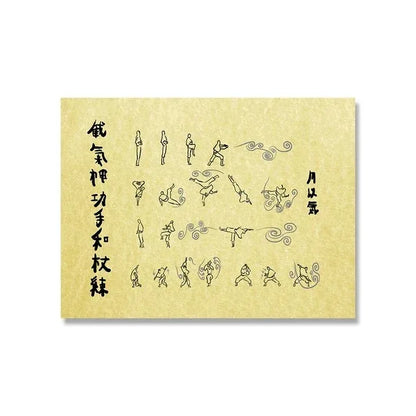 截氣神功手和杖練
月以氣